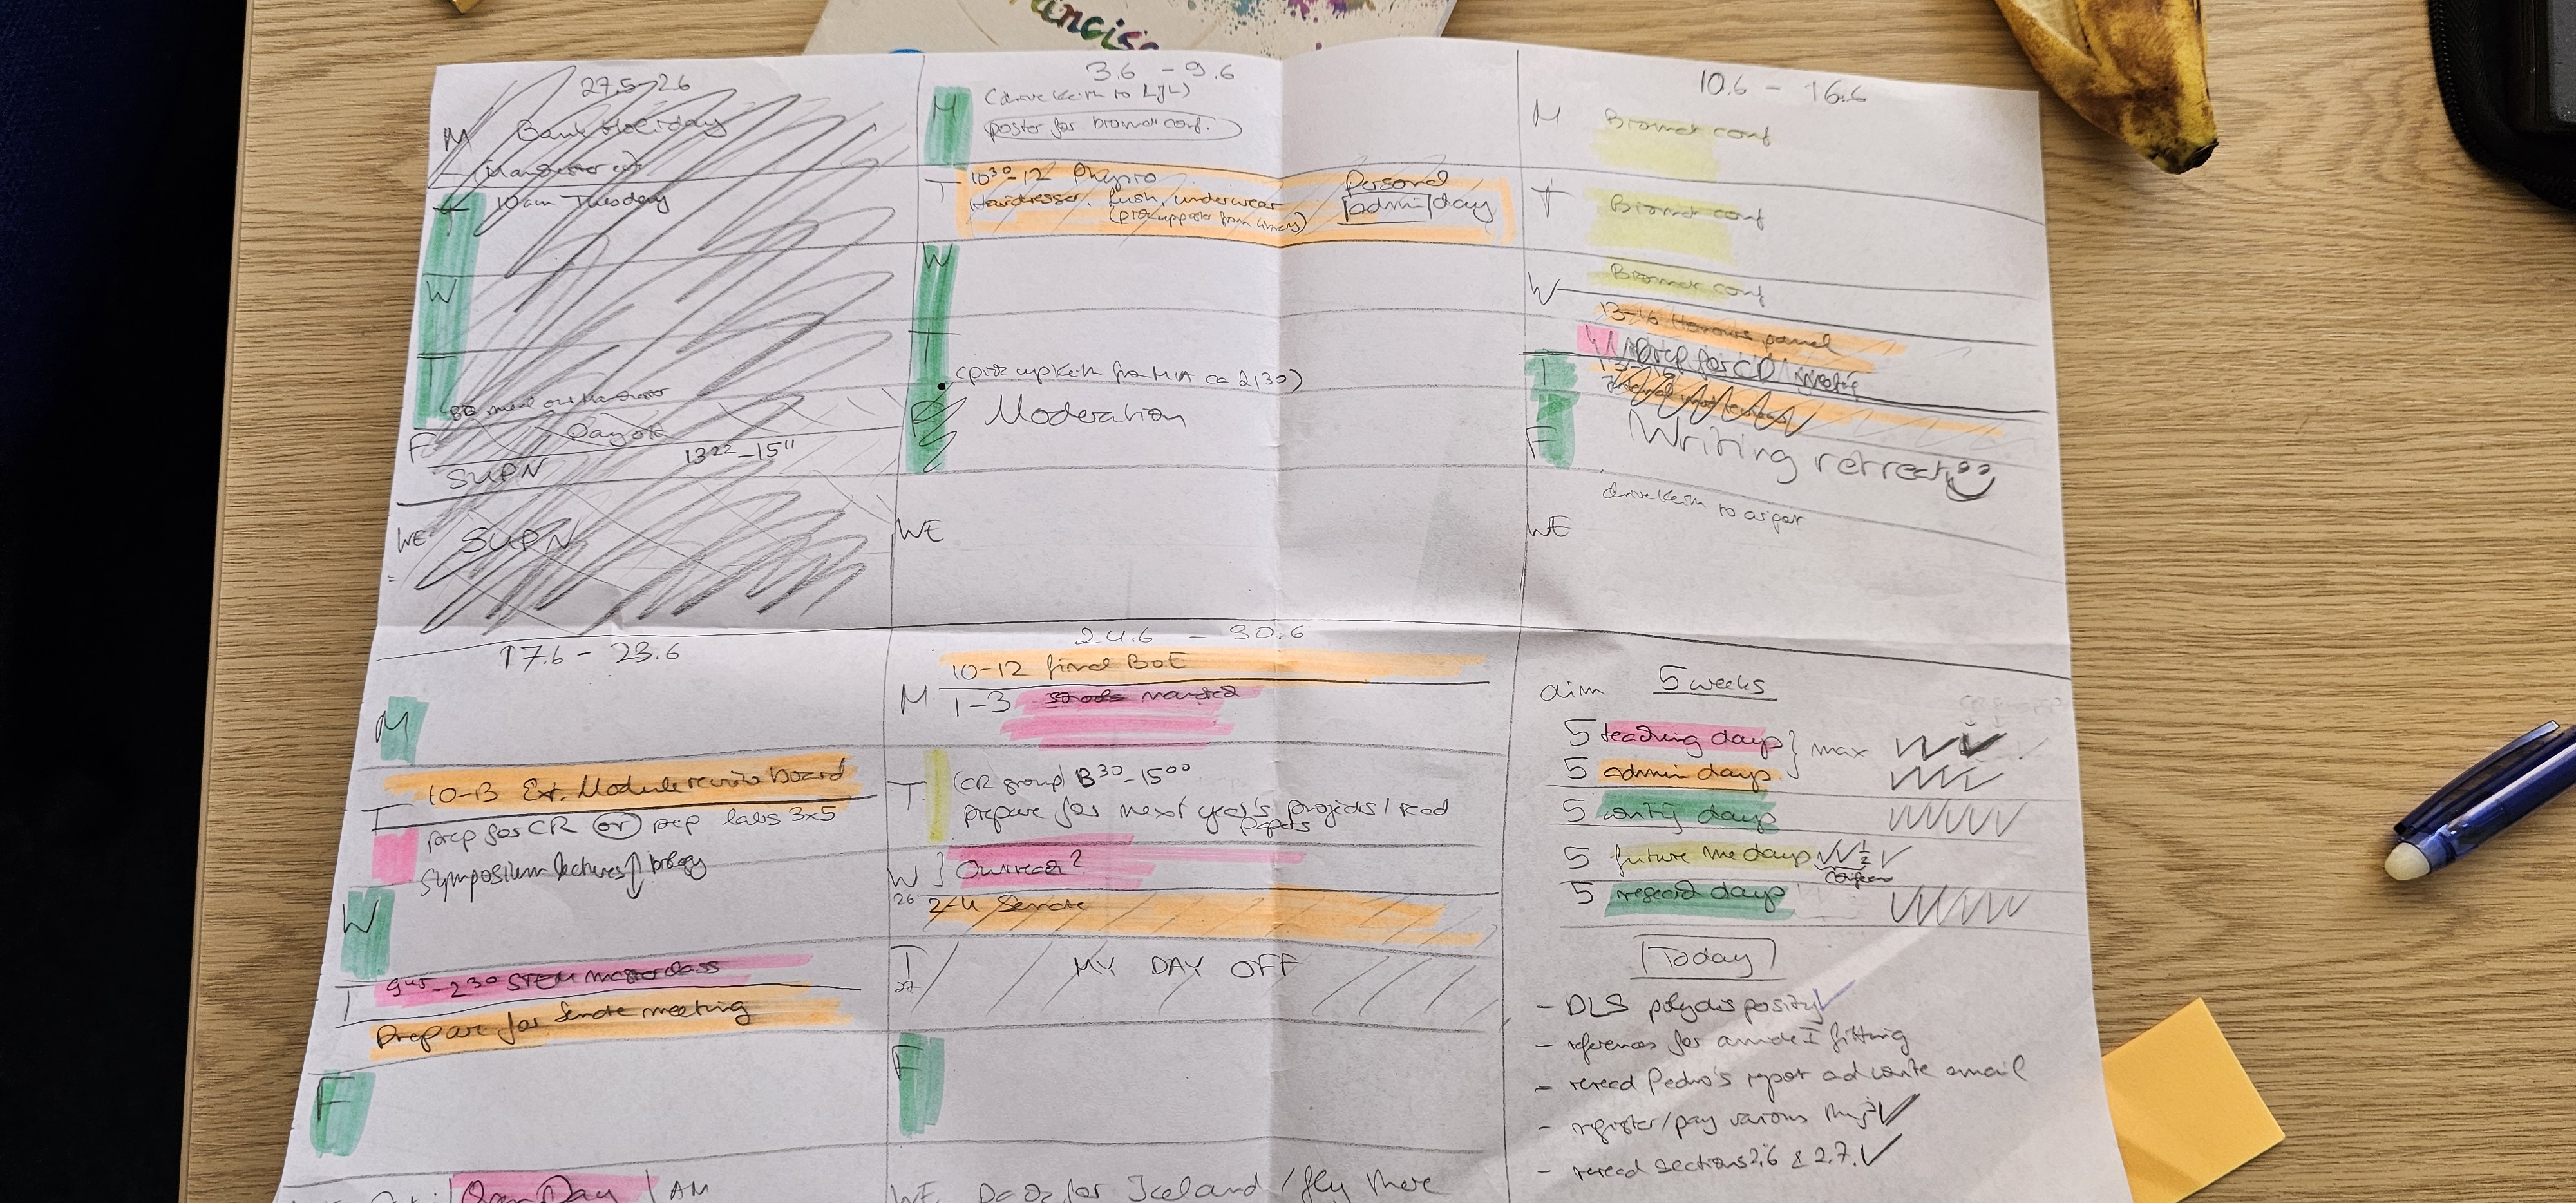 27.5-2.6
M Bank Holiday
T 10am Tuesday
W
T
F Day off
SUPN 13²²-15¹¹
WE SUPN
3.6 - 9.6
M (drive Keith to LJL)
poster for biomol conf.
T 10³⁰-12 Physio
Hairdresser, fush, underwear
Personal
admin day
W
T
(pick up Keith from MIA ca 2,30)
F Moderation
WE
10.6 - 16.6
M Biomol conf
T Biomol conf
W Biomol conf
13-16 Honours panel
prep for CD
T
F Writing retreat
drive Keith to airport
WE
17.6 - 23.6
M
T 10-13 Ext. Module review board
prep for CR or prep labs 3x5
Symposium lectures biology
W
T 9⁴⁵-2³⁰ STEM masterclass
Prepare for Senate meeting
F
Open Day AM
24.6 - 30.6
M 10-12 final BoE
1-3
T (CR group) 13³⁰-15⁰⁰
prepare for next year's projects/read
papers
W Outreach?
26 2-4 Senate
T MY DAY OFF
27
F
WE Pack for Iceland / fly there
aim 5 weeks
5 teaching days } max
5 admin days
5 writing days
5 future me days ½
5 research days
Today
- DLS polydispersity
- references for amide I fitting
- reread Pedro's report and write email
- register/pay various things
- reread sections 2.6 & 2.7.